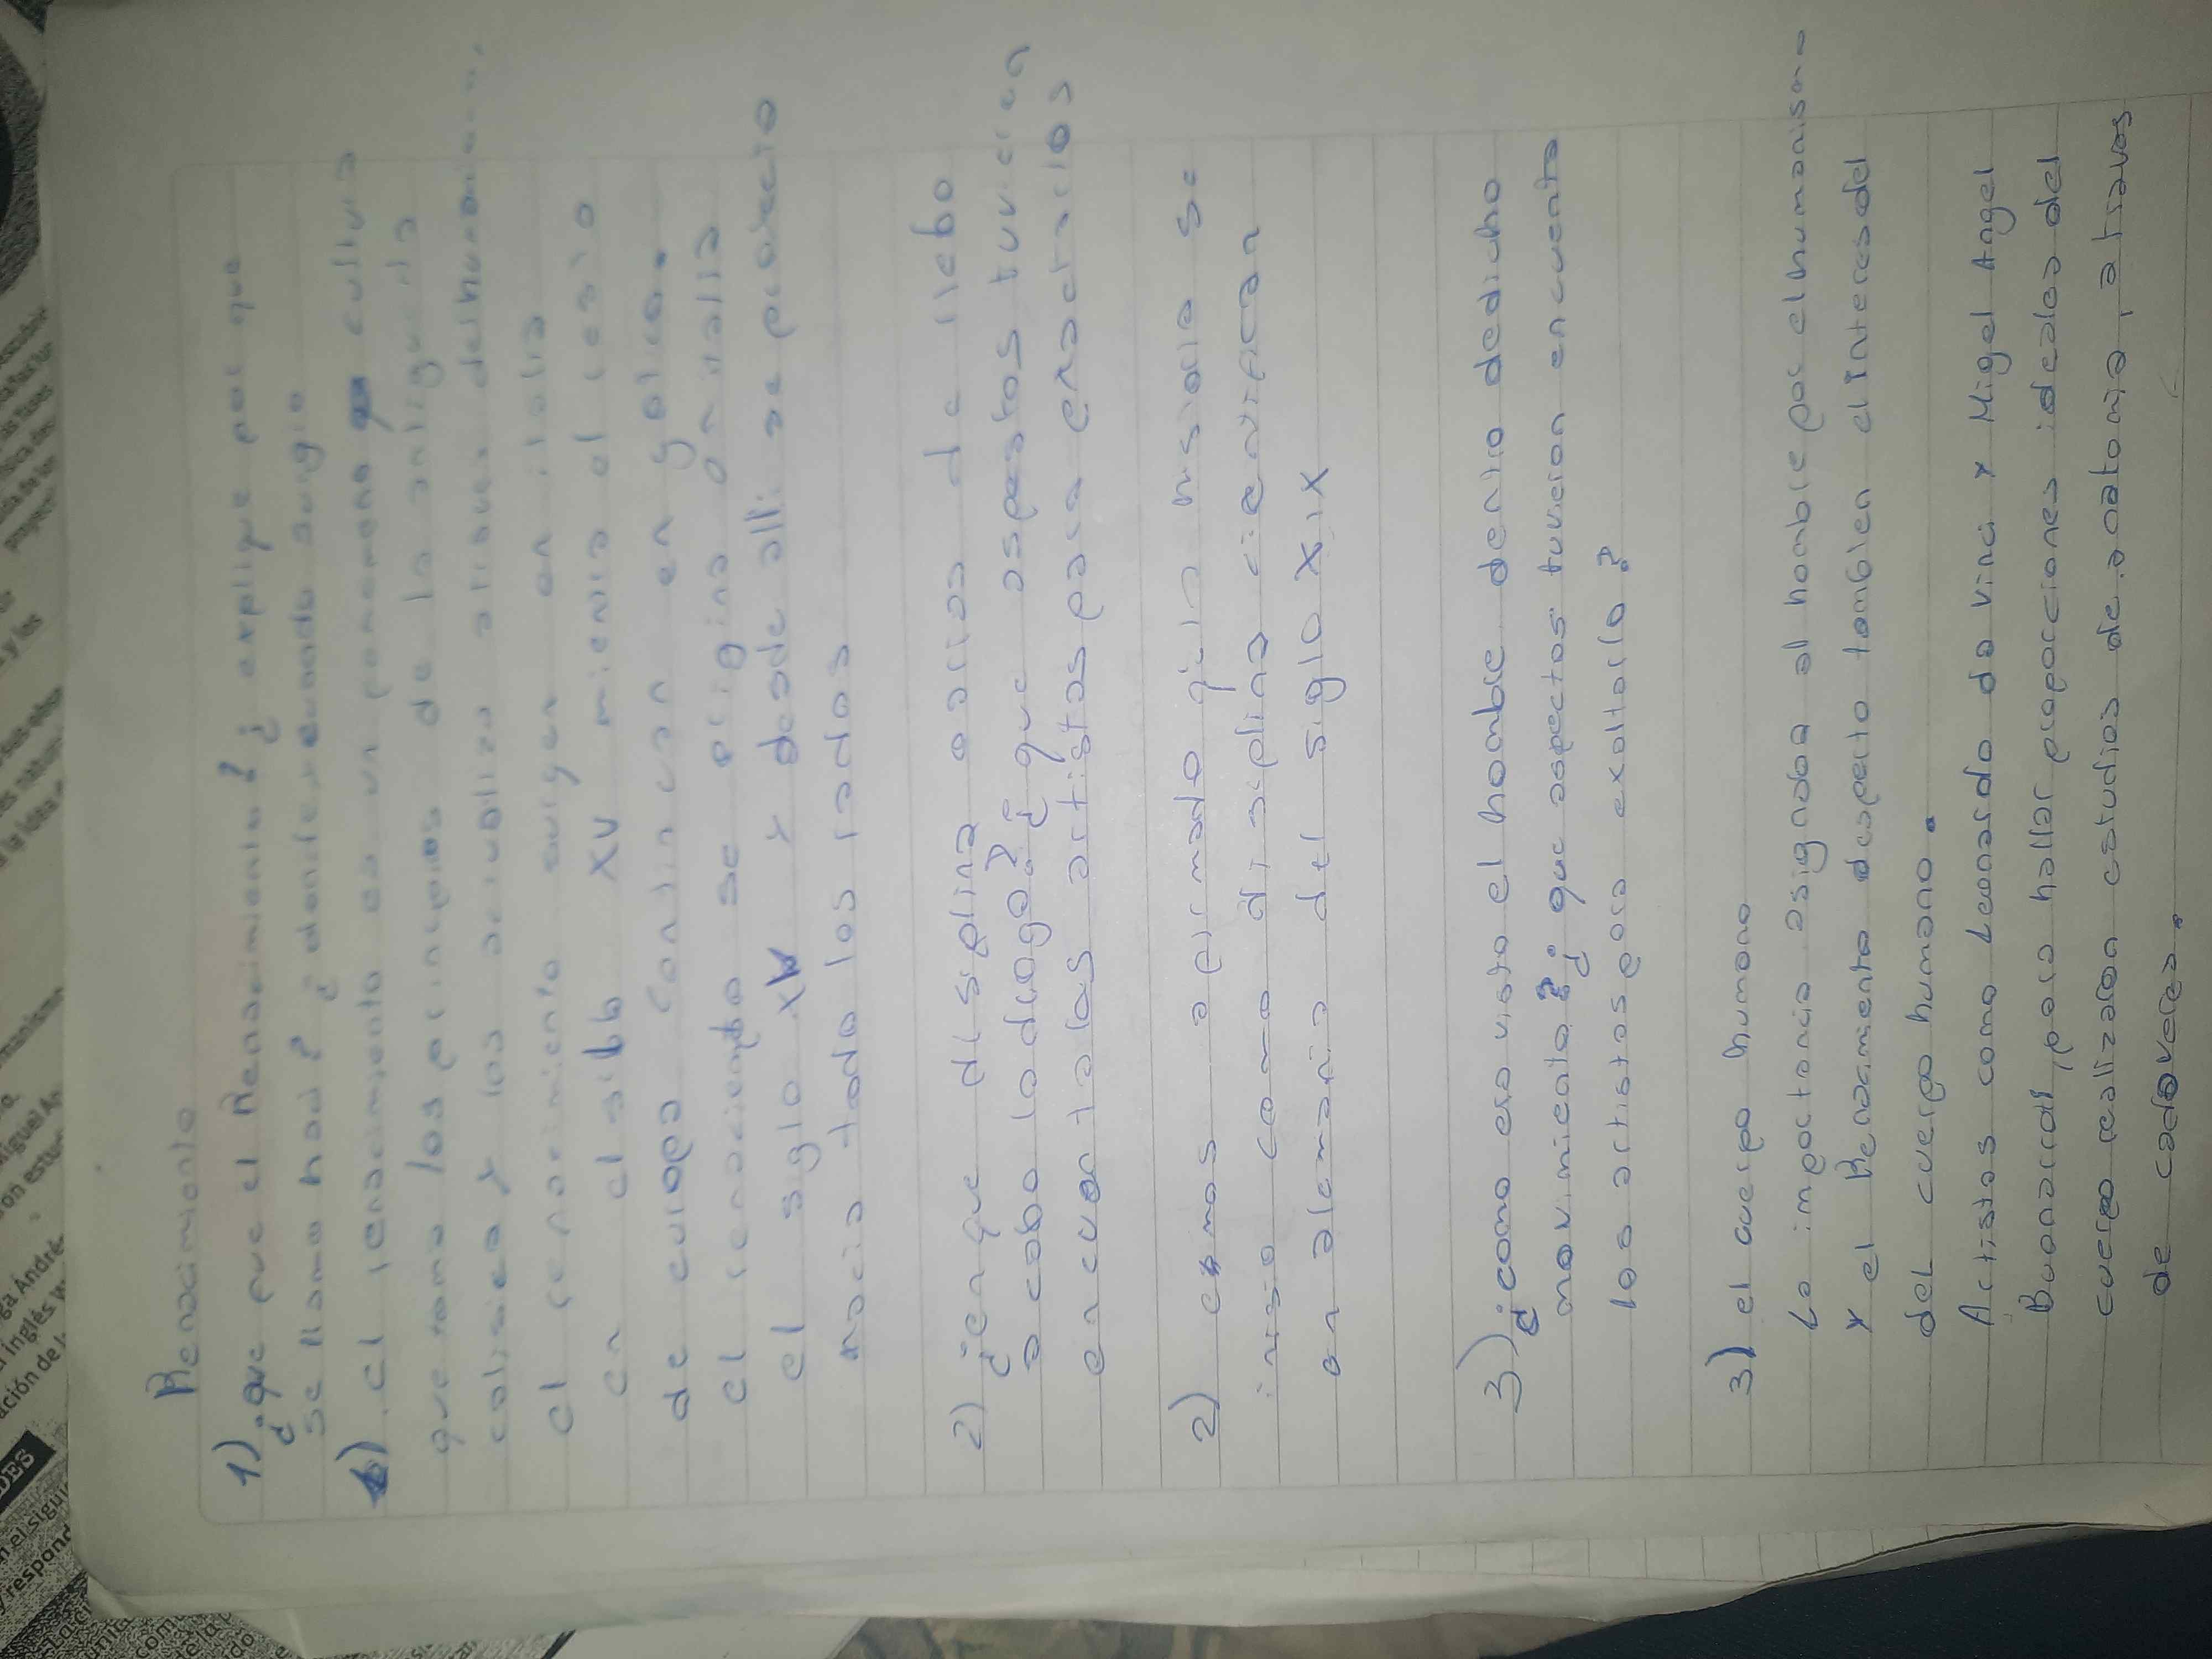 Renacimiento
1) ¿que pue el Renacimiento? ¿ explique por que
se llama haci? ¿donde, cuando surgio
1) el renacimiento es un panomeno cultura
que toma los principios de la antigueda
calsica y los actualiza atraves del humanismo,
El renacimiento surgen en italia
en el siblo XV mientra el resto
de europa continuan en gotico.
El renaciemto se origina en italia
el siglo XV y desde alli se parecio
hacia todo los lados
2) ¿en que displina acrias de llebo
a cabo la dioga? ¿ que aspestos tuvieren
en cuenta los artistas para
2) emos a pirmado q la histaria se
inisio como disiplina cientipica
en alemania del siglo XIX
3) ¿como era visto el hombre dentro dedicho
movimieato? ¿ que aspectos tuvieron en cuenta
los artistas para exaltarlo?
3) el cuerpo humano
La importancia asignada al hombre por el humanismo
y el Renacimiento desperto tambien el interes del
del cuerpo humano.
Artistas como Leonardo da vinci y Migel Angel
Buonarroti, para hallar proporciones ideales del
cuerpo realizaron estudios de anatomia, atraves
de cadaveres.
DES
en el siguie
y respond